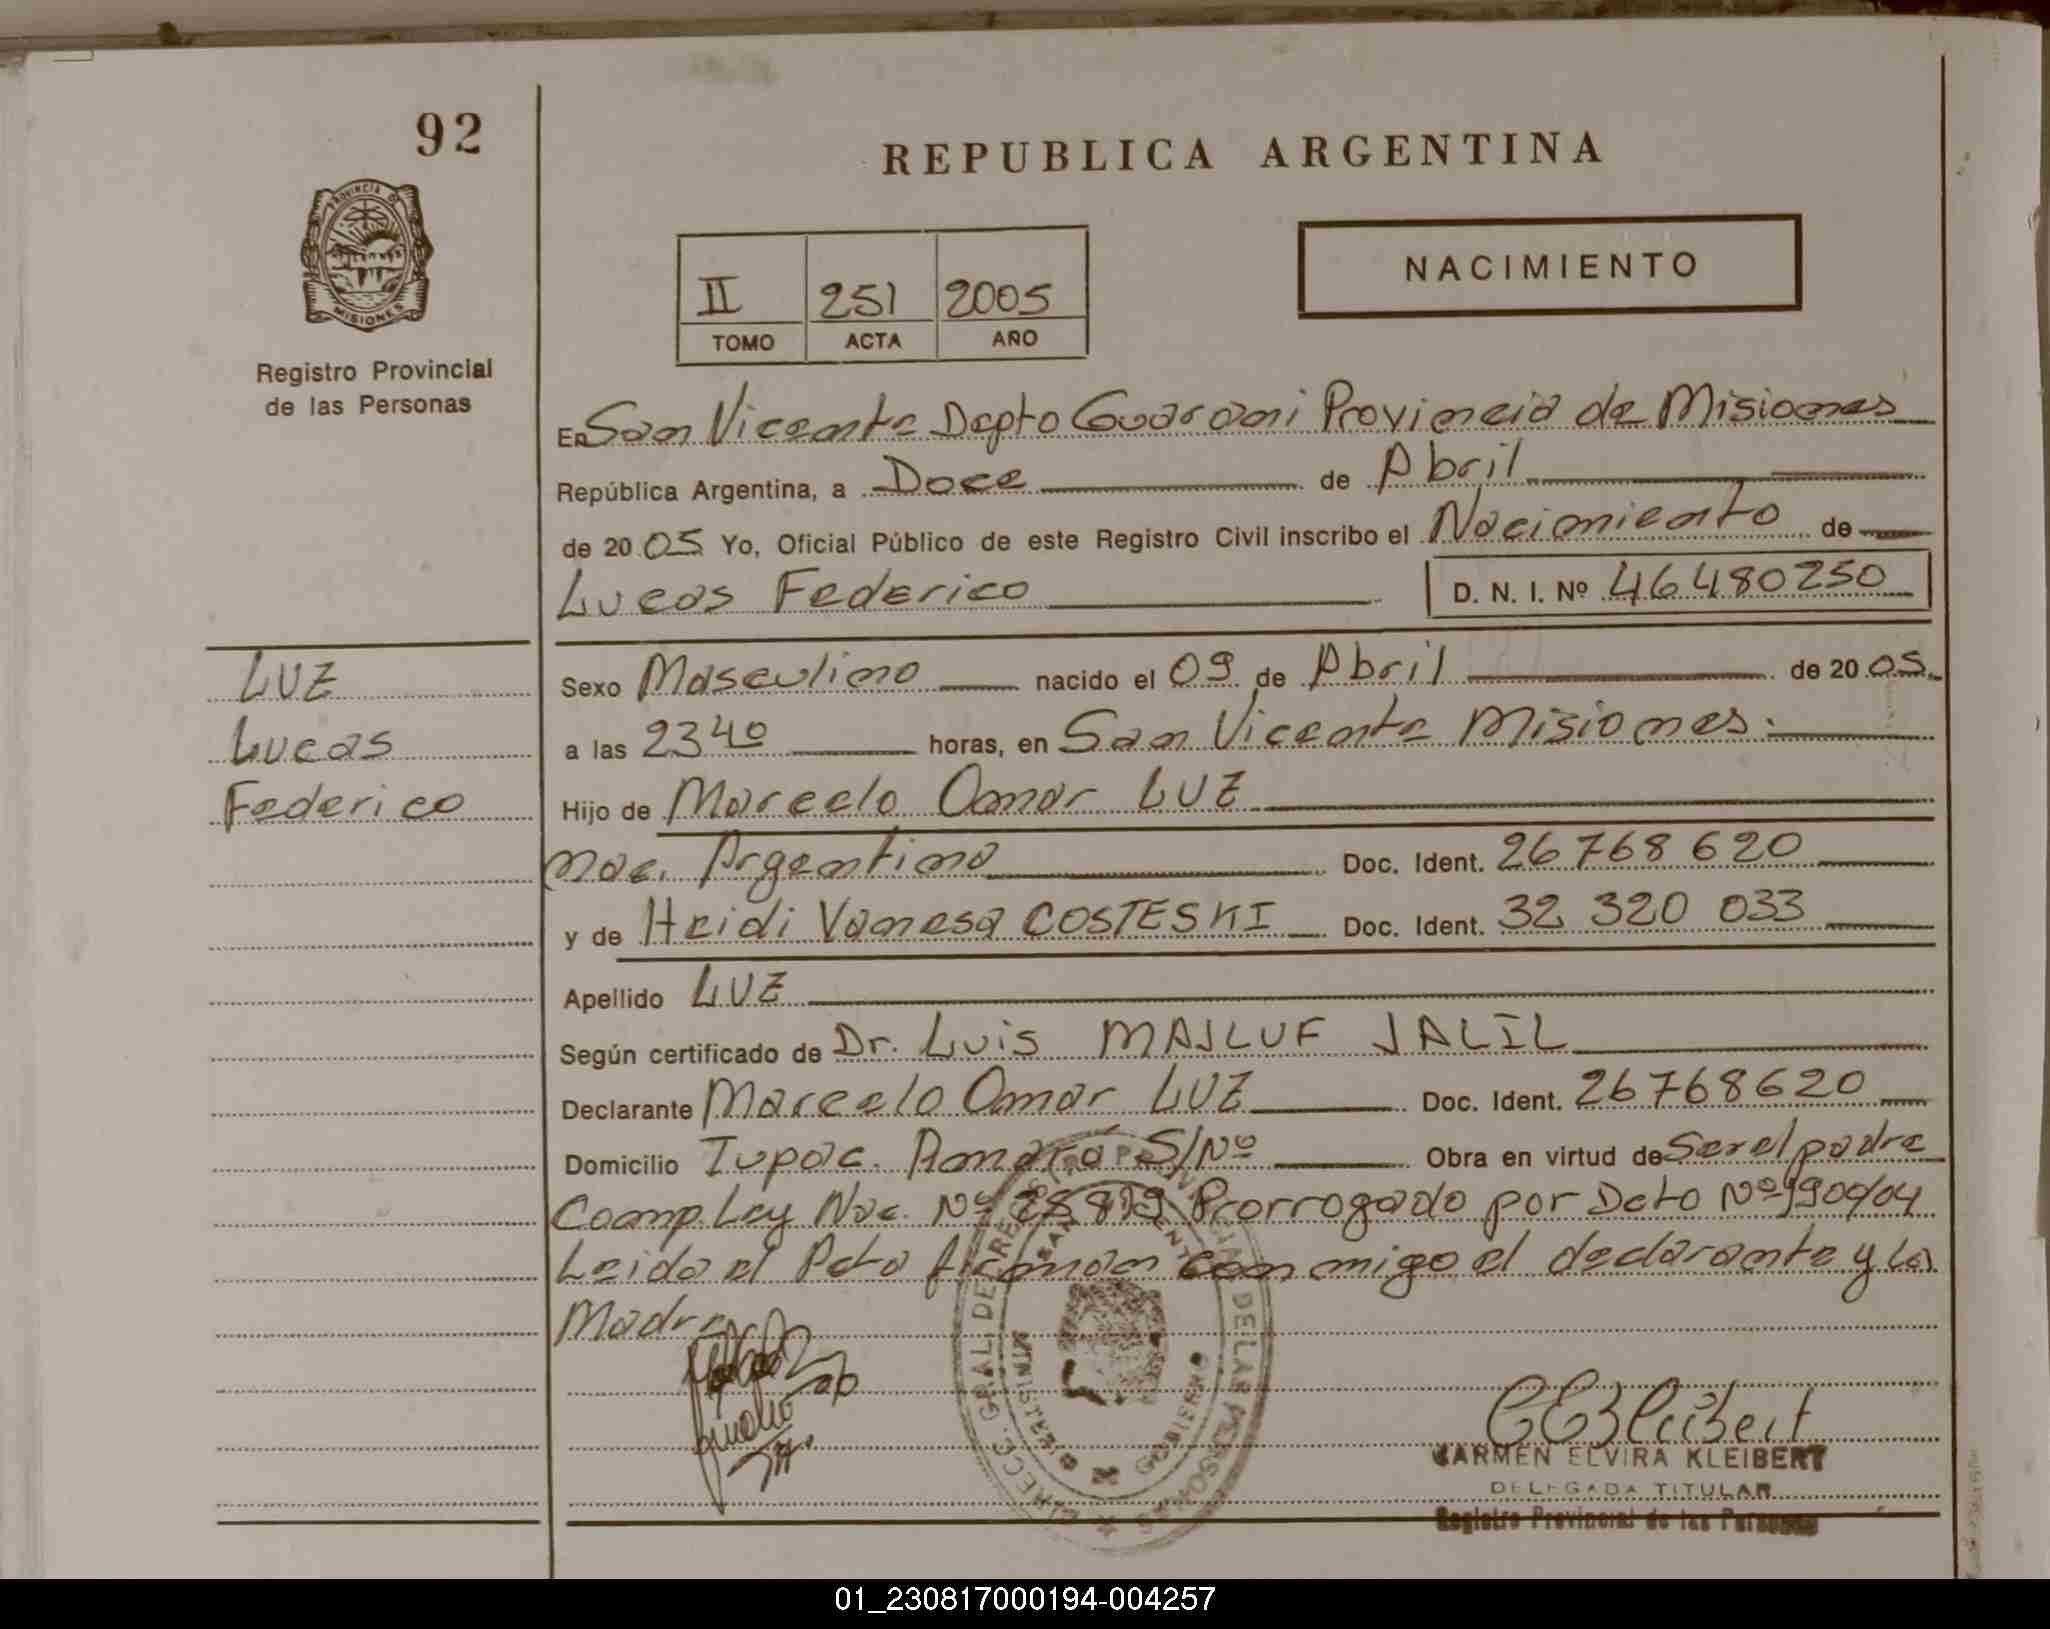 92
REPUBLICA ARGENTINA
PROVINCIA DE MISIONES
Registro Provincial
de las Personas
II 251 2005
TOMO ACTA AÑO
NACIMIENTO
En San Vicente Depto Guarani Provincia de Misiones
República Argentina, a Doce de Abril
de 2005 Yo, Oficial Público de este Registro Civil inscribo el Nacimiento de
Lucas Federico D. N. I. Nº 46480250
LUZ
Lucas
Federico
Sexo Masculino nacido el 09 de Abril de 2005
a las 2340 horas, en San Vicente Misiones.
Hijo de Marcelo Omar LUZ
nac. Argentina Doc. Ident. 26768620
y de Heidi Vanesa COSTESKI Doc. Ident. 32 320 033
Apellido LUZ
Según certificado de Dr. Luis MAJLUF JALIL
Declarante Marcelo Omar LUZ Doc. Ident. 26768620
Domicilio Tupac. Amaru S/Nº Obra en virtud de Ser el padre
Comp. Ley Nac. Nº Prorrogado por Dcto Nº 1900/04
Leida el Acta firman conmigo el declarante y la
Madre
DIRECC. GRAL. DE REGISTRO PROVINCIAL DE LAS PERSONAS
SAN VICENTE
MINISTERIO GOBIERNO
CEKleibert
CARMEN ELVIRA KLEIBERT
DELEGADA TITULAR
Registro Provincial de las Personas
01_230817000194-004257